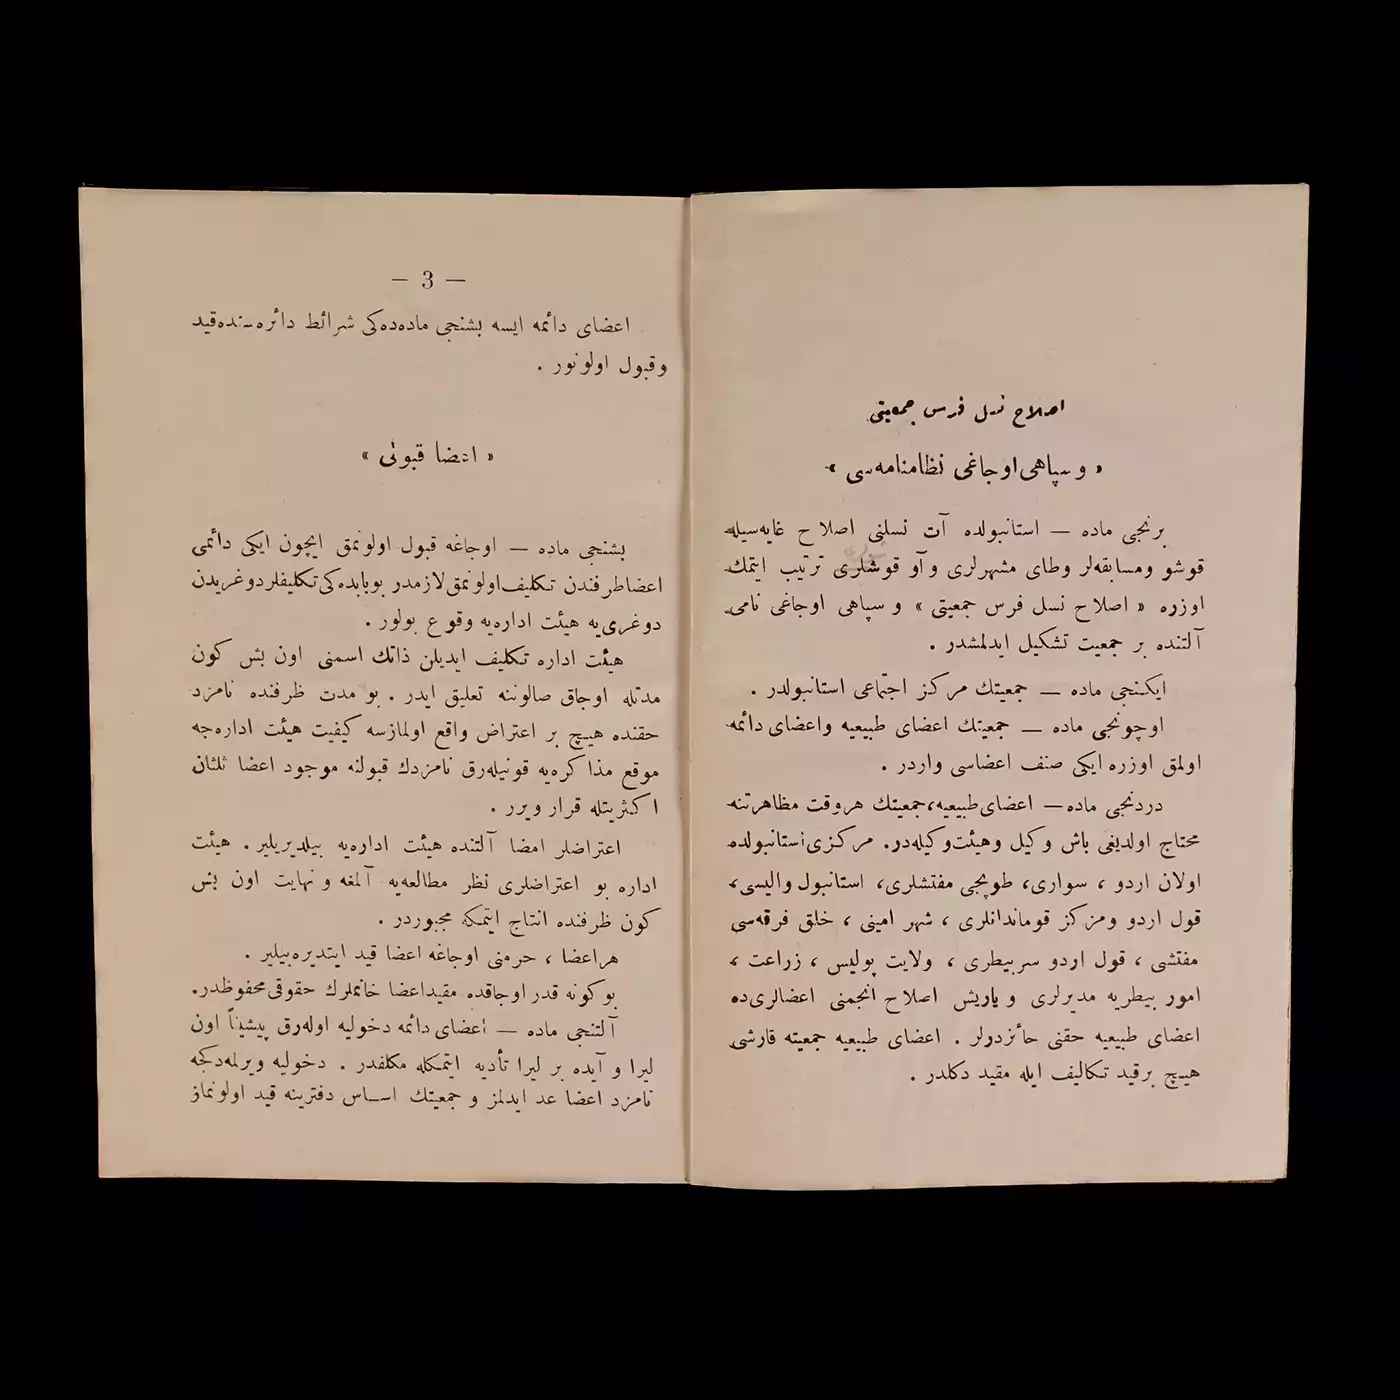 اصلاح نسل فرس جمعیتی
« و سپاهی اوجاغی نظامنامه‌سی »
برنجی ماده — استانبولده آت نسلنی اصلاح غایه‌سیله
قوشو ومسابقه‌لر وطای مشهرلری و آو قوشلری ترتیب ایتمك
اوزره « اصلاح نسل فرس جمعیتی » و سپاهی اوجاغی نامی
آلتنده بر جمعیت تشکیل ایدلمشدر .
ایکنجی ماده — جمعیتك مرکز اجتماعی استانبولدر .
اوچونجی ماده — جمعیتك اعضای طبیعیه واعضای دائمه
اولمق اوزره ایکی صنف اعضاسی واردر .
دردنجی ماده — اعضای طبیعیه، جمعیتك هروقت مظاهرتنه
محتاج اولدیغی باش وکیل وهیئت وکیله‌در. مرکزی استانبولده
اولان اردو ، سواری، طوپجی مفتشلری، استانبول والیسی،
قول اردو ومرکز قوماندانلری ، شهر امینی ، خلق فرقه‌سی
مفتشی ، قول اردو سربیطری ، ولایت پولیس ، زراعت ،
امور بیطریه مدیرلری و یاریش اصلاح انجمنی اعضالری‌ده
اعضای طبیعیه حقنی حائزدرلر . اعضای طبیعیه جمعیته قارشی
هیچ برقید تکالیف ایله مقید دکلدر .
— 3 —
اعضای دائمه ایسه بشنجی ماده‌ده‌کی شرائط دائره‌سنده‌قید
وقبول اولونور .
« اعضا قبولی »
بشنجی ماده — اوجاغه قبول اولونمق ایچون ایکی دائمی
اعضاطرفندن تکلیف‌اولونمق‌لازمدر بوبابده‌کی‌تکلیفلردوغریدن
دوغری‌یه هیئت اداره‌یه وقوع بولور .
هیئت اداره تکلیف ایدیلن ذاتك اسمنی اون بش کون
مدتله اوجاق صالوننه تعلیق ایدر . بو مدت ظرفنده نامزد
حقنده هیچ بر اعتراض واقع اولمازسه کیفیت هیئت اداره‌جه
موقع مذاکره‌یه قونیله‌رق نامزدك قبولنه موجود اعضا ثلثان
اکثریتله قرار ویرر .
اعتراضلر امضا آلتنده هیئت اداره‌یه بیلدیریلیر . هیئت
اداره بو اعتراضلری نظر مطالعه‌یه آلمغه و نهایت اون بش
کون ظرفنده انتاج ایتمکه مجبوردر .
هراعضا ، حرمنی اوجاغه اعضا قید ایتدیره‌بیلیر .
بوکونه قدر اوجاقده مقیداعضا خانملرك حقوقی‌محفوظدر.
آلتنجی ماده — اعضای دائمه دخولیه اوله‌رق پیشیناً اون
لیرا و آیده بر لیرا تأدیه ایتمکله مکلفدر . دخولیه ویرلمه‌دکجه
نامزد اعضا عد ایدلمز و جمعیتك اساس دفترینه قید اولونماز